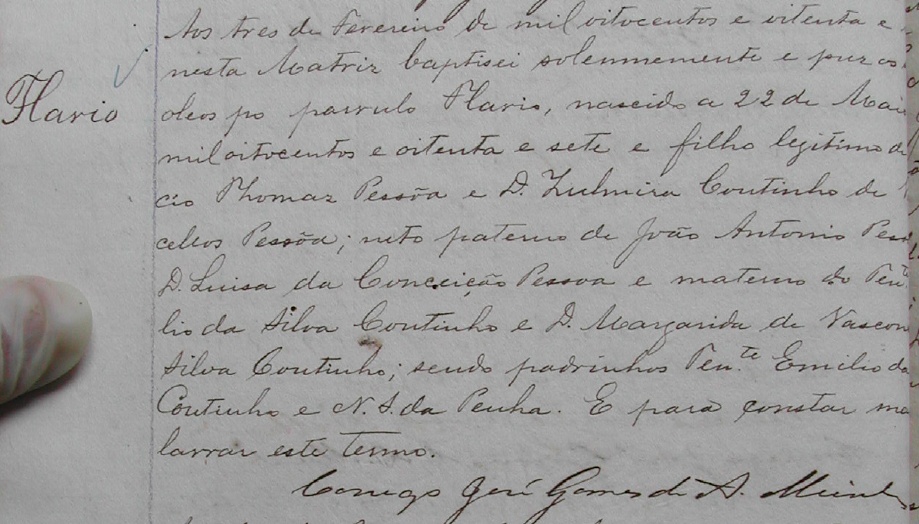 Aos tres de Fevereiro de mil oitocentos e oitenta e
nesta Matriz baptisei solemnemente e puz os
Flavio
oleos ao parvulo Flavio, nascido a 22 de Mai
mil oitocentos e oitenta e sete e filho legitimo de
cio Thomaz Pessôa e D. Zulmira Coutinho de
cellos Pessôa; neto paterno de João Antonio Pess
D. Luisa da Conceição Pessoa e materno do Ten.te
lio da Silva Coutinho e D. Margarida de Vascon
Silva Coutinho; sendo padrinhos Ten.te Emilio da
Coutinho e N. S. da Penha. E para constar ma
lavrar este termo.
Conego José Gomes de A.